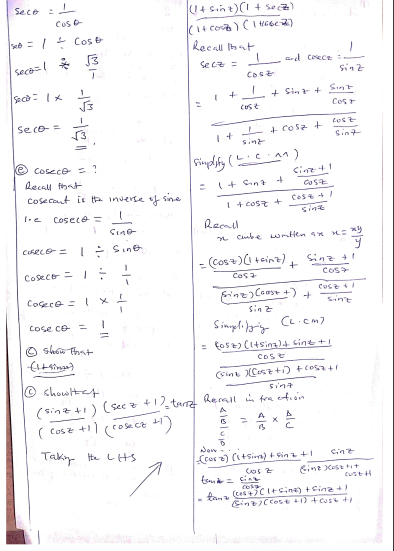 Secθ = 1/cosθ
secθ = 1 ÷ Cosθ
secθ = 1 ÷ √3/1
secθ = 1 × 1/√3
secθ = 1/√3
ⓔ cosecθ = ?
Recall that
cosecant is the inverse of sine
i.e cosecθ = 1/sinθ
cosecθ = 1 ÷ Sinθ
Cosecθ = 1 ÷ 1/1
Cosecθ = 1 × 1/1
cosecθ = 1
ⓒ Show that
ⓒ show that
(sin z + 1)(sec z + 1)/(cos z + 1)(cosec z + 1) = tan z
Taking the LHS
(1 + sin z)(1 + sec z)/(1 + cos z)(1 + cosec z)
Recall that
sec z = 1/cos z and cosec z = 1/sin z
= 1 + 1/cos z + sin z + sin z/cos z
1 + 1/sin z + cos z + cos z/sin z
Simplify (L.C.M)
= 1 + sin z + sin z + 1/cos z
1 + cos z + cos z + 1/sin z
Recall
x can be written as x = xy/y
= (cos z)(1 + sin z)/cos z + sin z + 1/cos z
(sin z)(cos z + 1)/sin z + cos z + 1/sin z
Simplifying (L.C.M)
= (cos z)(1 + sin z) + sin z + 1/cos z
(sin z)(cos z + 1) + cos z + 1/sin z
Recall in fraction
A/B / C/D = A/B × D/C
Now
= (cos z)(1 + sin z) + sin z + 1/cos z sin z/(sin z)(cos z + 1) + cos z + 1
tan z = sin z/cos z
= tan z (cos z)(1 + sin z) + sin z + 1/sin z)(cos z + 1) + cos z + 1